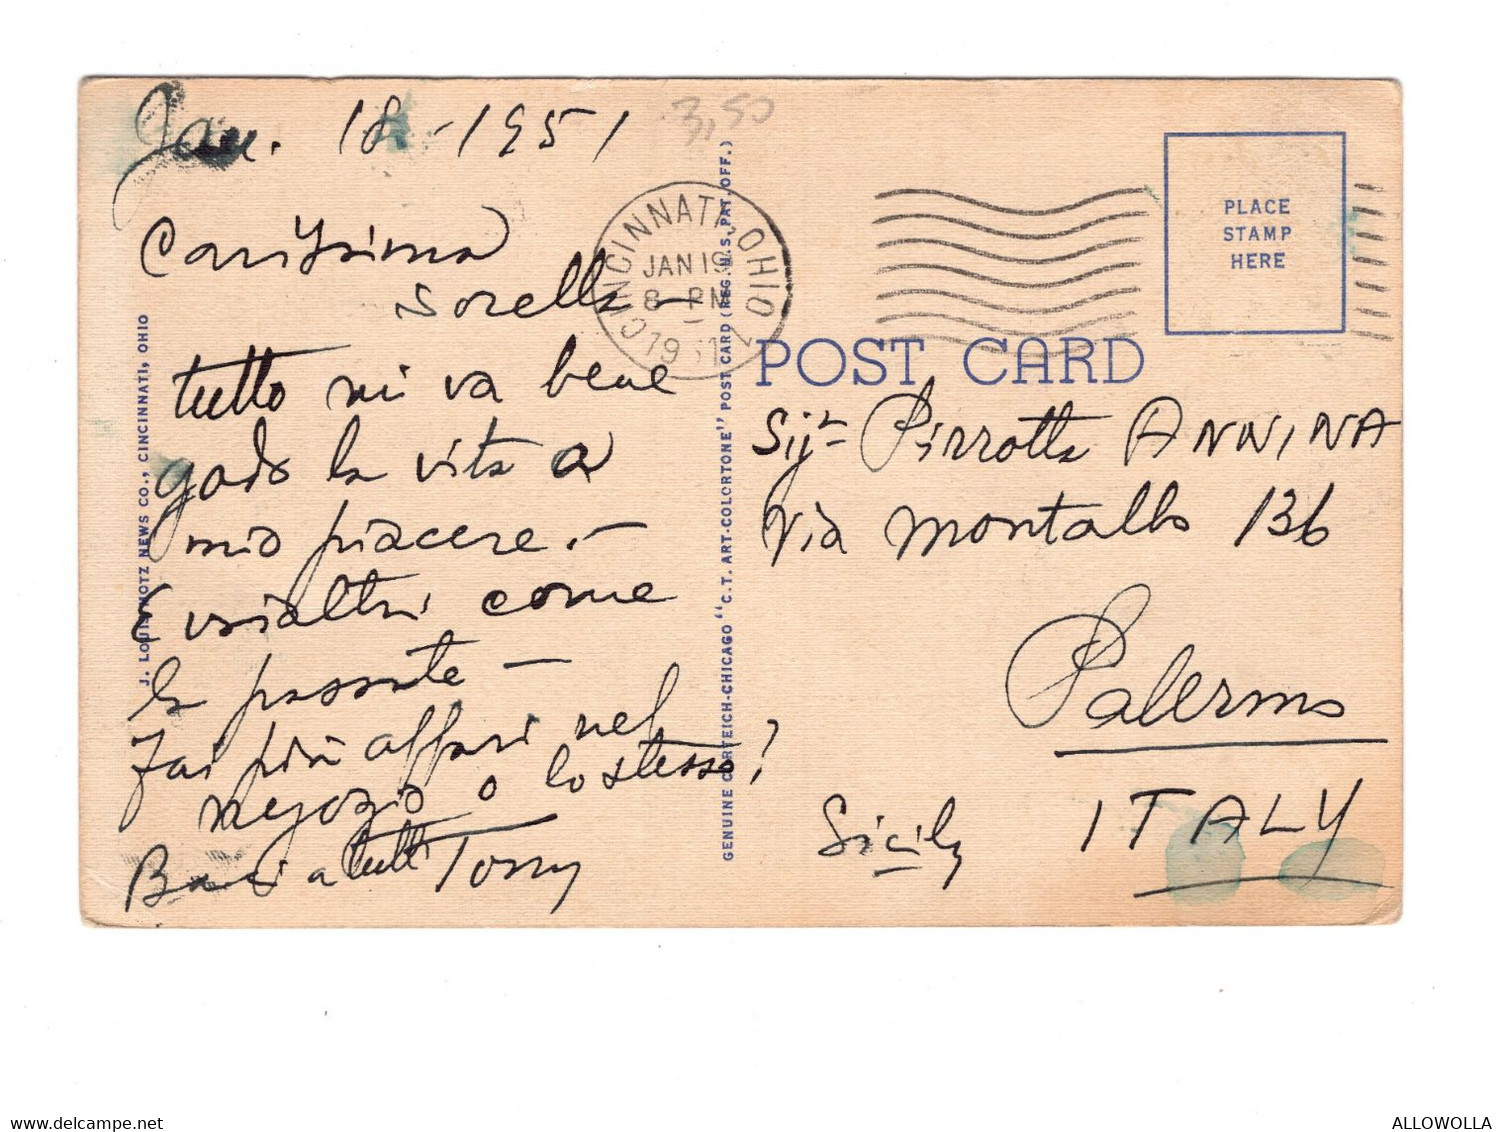 Jan. 18 - 1951
3,50
Carissima
sorella -
tutto mi va bene
godo la vita a
mio piacere. -
E voialtri come
la passate -
Fai più affari nel
negozio o lo stesso?
Baci a tutti Tony
J. LOUIS MOTZ NEWS CO., CINCINNATI, OHIO
GENUINE CURTEICH-CHICAGO "C.T. ART-COLORTONE" POST CARD (REG. U.S. PAT. OFF.)
CINCINNATI, OHIO
JAN 19
8 - PM
1951
PLACE
STAMP
HERE
POST CARD
Sigr Pirrotta ANNINA
Via Montalbo 136
Palermo
Sicily ITALY
ALLOWOLLA